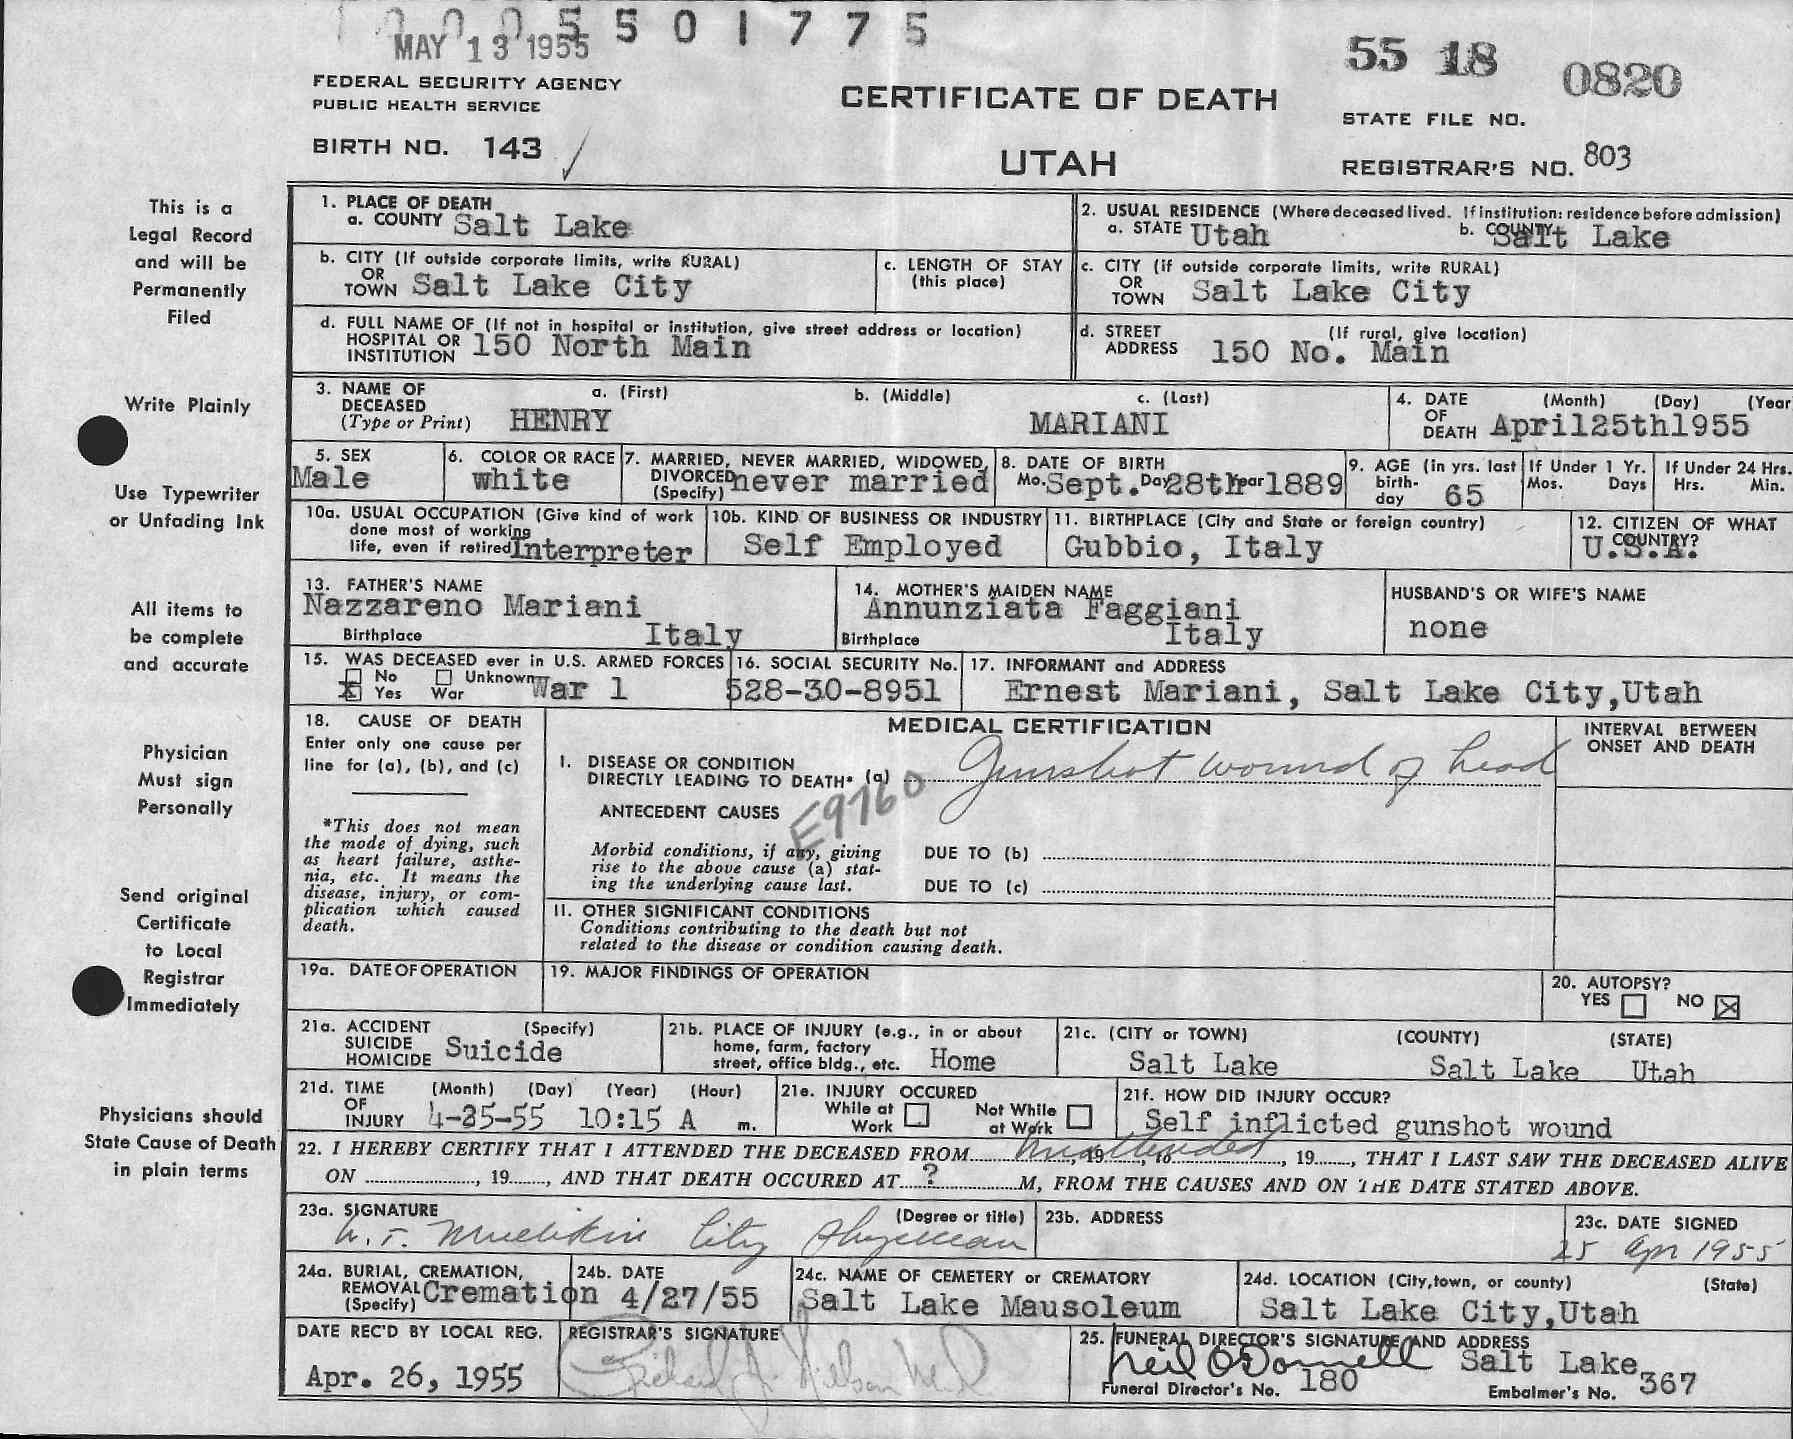 0005501775
MAY 13 1955
55 18 0820
FEDERAL SECURITY AGENCY
PUBLIC HEALTH SERVICE
CERTIFICATE OF DEATH
STATE FILE NO.
BIRTH NO. 143
UTAH
REGISTRAR'S NO. 803
This is a
Legal Record
and will be
Permanently
Filed
Write Plainly
Use Typewriter
or Unfading Ink
All items to
be complete
and accurate
Physician
Must sign
Personally
Send original
Certificate
to Local
Registrar
Immediately
Physicians should
State Cause of Death
in plain terms
1. PLACE OF DEATH
a. COUNTY Salt Lake
2. USUAL RESIDENCE (Where deceased lived. If institution: residence before admission)
a. STATE Utah b. COUNTY Salt Lake
b. CITY (If outside corporate limits, write RURAL)
OR
TOWN Salt Lake City
c. LENGTH OF STAY
(this place)
c. CITY (if outside corporate limits, write RURAL)
OR
TOWN Salt Lake City
d. FULL NAME OF (If not in hospital or institution, give street address or location)
HOSPITAL OR
INSTITUTION 150 North Main
d. STREET (If rural, give location)
ADDRESS 150 No. Main
3. NAME OF a. (First) b. (Middle) c. (Last)
DECEASED
(Type or Print) HENRY MARIANI
4. DATE (Month) (Day) (Year
OF
DEATH April25th1955
5. SEX
Male
6. COLOR OR RACE
white
7. MARRIED, NEVER MARRIED, WIDOWED,
DIVORCED
(Specify) never married
8. DATE OF BIRTH
Mo. Sept. Day 28th Year 1889
9. AGE (in yrs. last
birth-
day 65
If Under 1 Yr.
Mos. Days
If Under 24 Hrs.
Hrs. Min.
10a. USUAL OCCUPATION (Give kind of work
done most of working
life, even if retired Interpreter
10b. KIND OF BUSINESS OR INDUSTRY
Self Employed
11. BIRTHPLACE (City and State or foreign country)
Gubbio, Italy
12. CITIZEN OF WHAT
COUNTRY?
U.S.A.
13. FATHER'S NAME
Nazzareno Mariani
Birthplace Italy
14. MOTHER'S MAIDEN NAME
Annunziata Faggiani
Birthplace Italy
HUSBAND'S OR WIFE'S NAME
none
15. WAS DECEASED ever in U.S. ARMED FORCES
No Unknown
X Yes War War 1
16. SOCIAL SECURITY No.
528-30-8951
17. INFORMANT and ADDRESS
Ernest Mariani, Salt Lake City,Utah
18. CAUSE OF DEATH
Enter only one cause per
line for (a), (b), and (c)
*This does not mean
the mode of dying, such
as heart failure, asthe-
nia, etc. It means the
disease, injury, or com-
plication which caused
death.
MEDICAL CERTIFICATION
INTERVAL BETWEEN
ONSET AND DEATH
I. DISEASE OR CONDITION
DIRECTLY LEADING TO DEATH* (a) Gunshot wound of head
ANTECEDENT CAUSES
E9760
Morbid conditions, if any, giving
rise to the above cause (a) stat-
ing the underlying cause last.
DUE TO (b)
DUE TO (c)
II. OTHER SIGNIFICANT CONDITIONS
Conditions contributing to the death but not
related to the disease or condition causing death.
19a. DATE OF OPERATION
19. MAJOR FINDINGS OF OPERATION
20. AUTOPSY?
YES NO X
21a. ACCIDENT (Specify)
SUICIDE
HOMICIDE Suicide
21b. PLACE OF INJURY (e.g., in or about
home, farm, factory
street, office bldg., etc. Home
21c. (CITY or TOWN) (COUNTY) (STATE)
Salt Lake Salt Lake Utah
21d. TIME (Month) (Day) (Year) (Hour)
OF
INJURY 4-25-55 10:15 A m.
21e. INJURY OCCURED
While at Not While
Work at Work
21f. HOW DID INJURY OCCUR?
Self inflicted gunshot wound
22. I HEREBY CERTIFY THAT I ATTENDED THE DECEASED FROM Unattended, 19, to, 19, THAT I LAST SAW THE DECEASED ALIVE
ON, 19, AND THAT DEATH OCCURED AT ? M, FROM THE CAUSES AND ON THE DATE STATED ABOVE.
23a. SIGNATURE (Degree or title)
City Physician
23b. ADDRESS
23c. DATE SIGNED
25 Apr 1955
24a. BURIAL, CREMATION,
REMOVAL
(Specify) Cremation
24b. DATE
4/27/55
24c. NAME OF CEMETERY or CREMATORY
Salt Lake Mausoleum
24d. LOCATION (City,town, or county) (State)
Salt Lake City,Utah
DATE REC'D BY LOCAL REG.
Apr. 26, 1955
REGISTRAR'S SIGNATURE
25. FUNERAL DIRECTOR'S SIGNATURE AND ADDRESS
Neil O'Donnell Salt Lake
Funeral Director's No. 180 Embalmer's No. 367